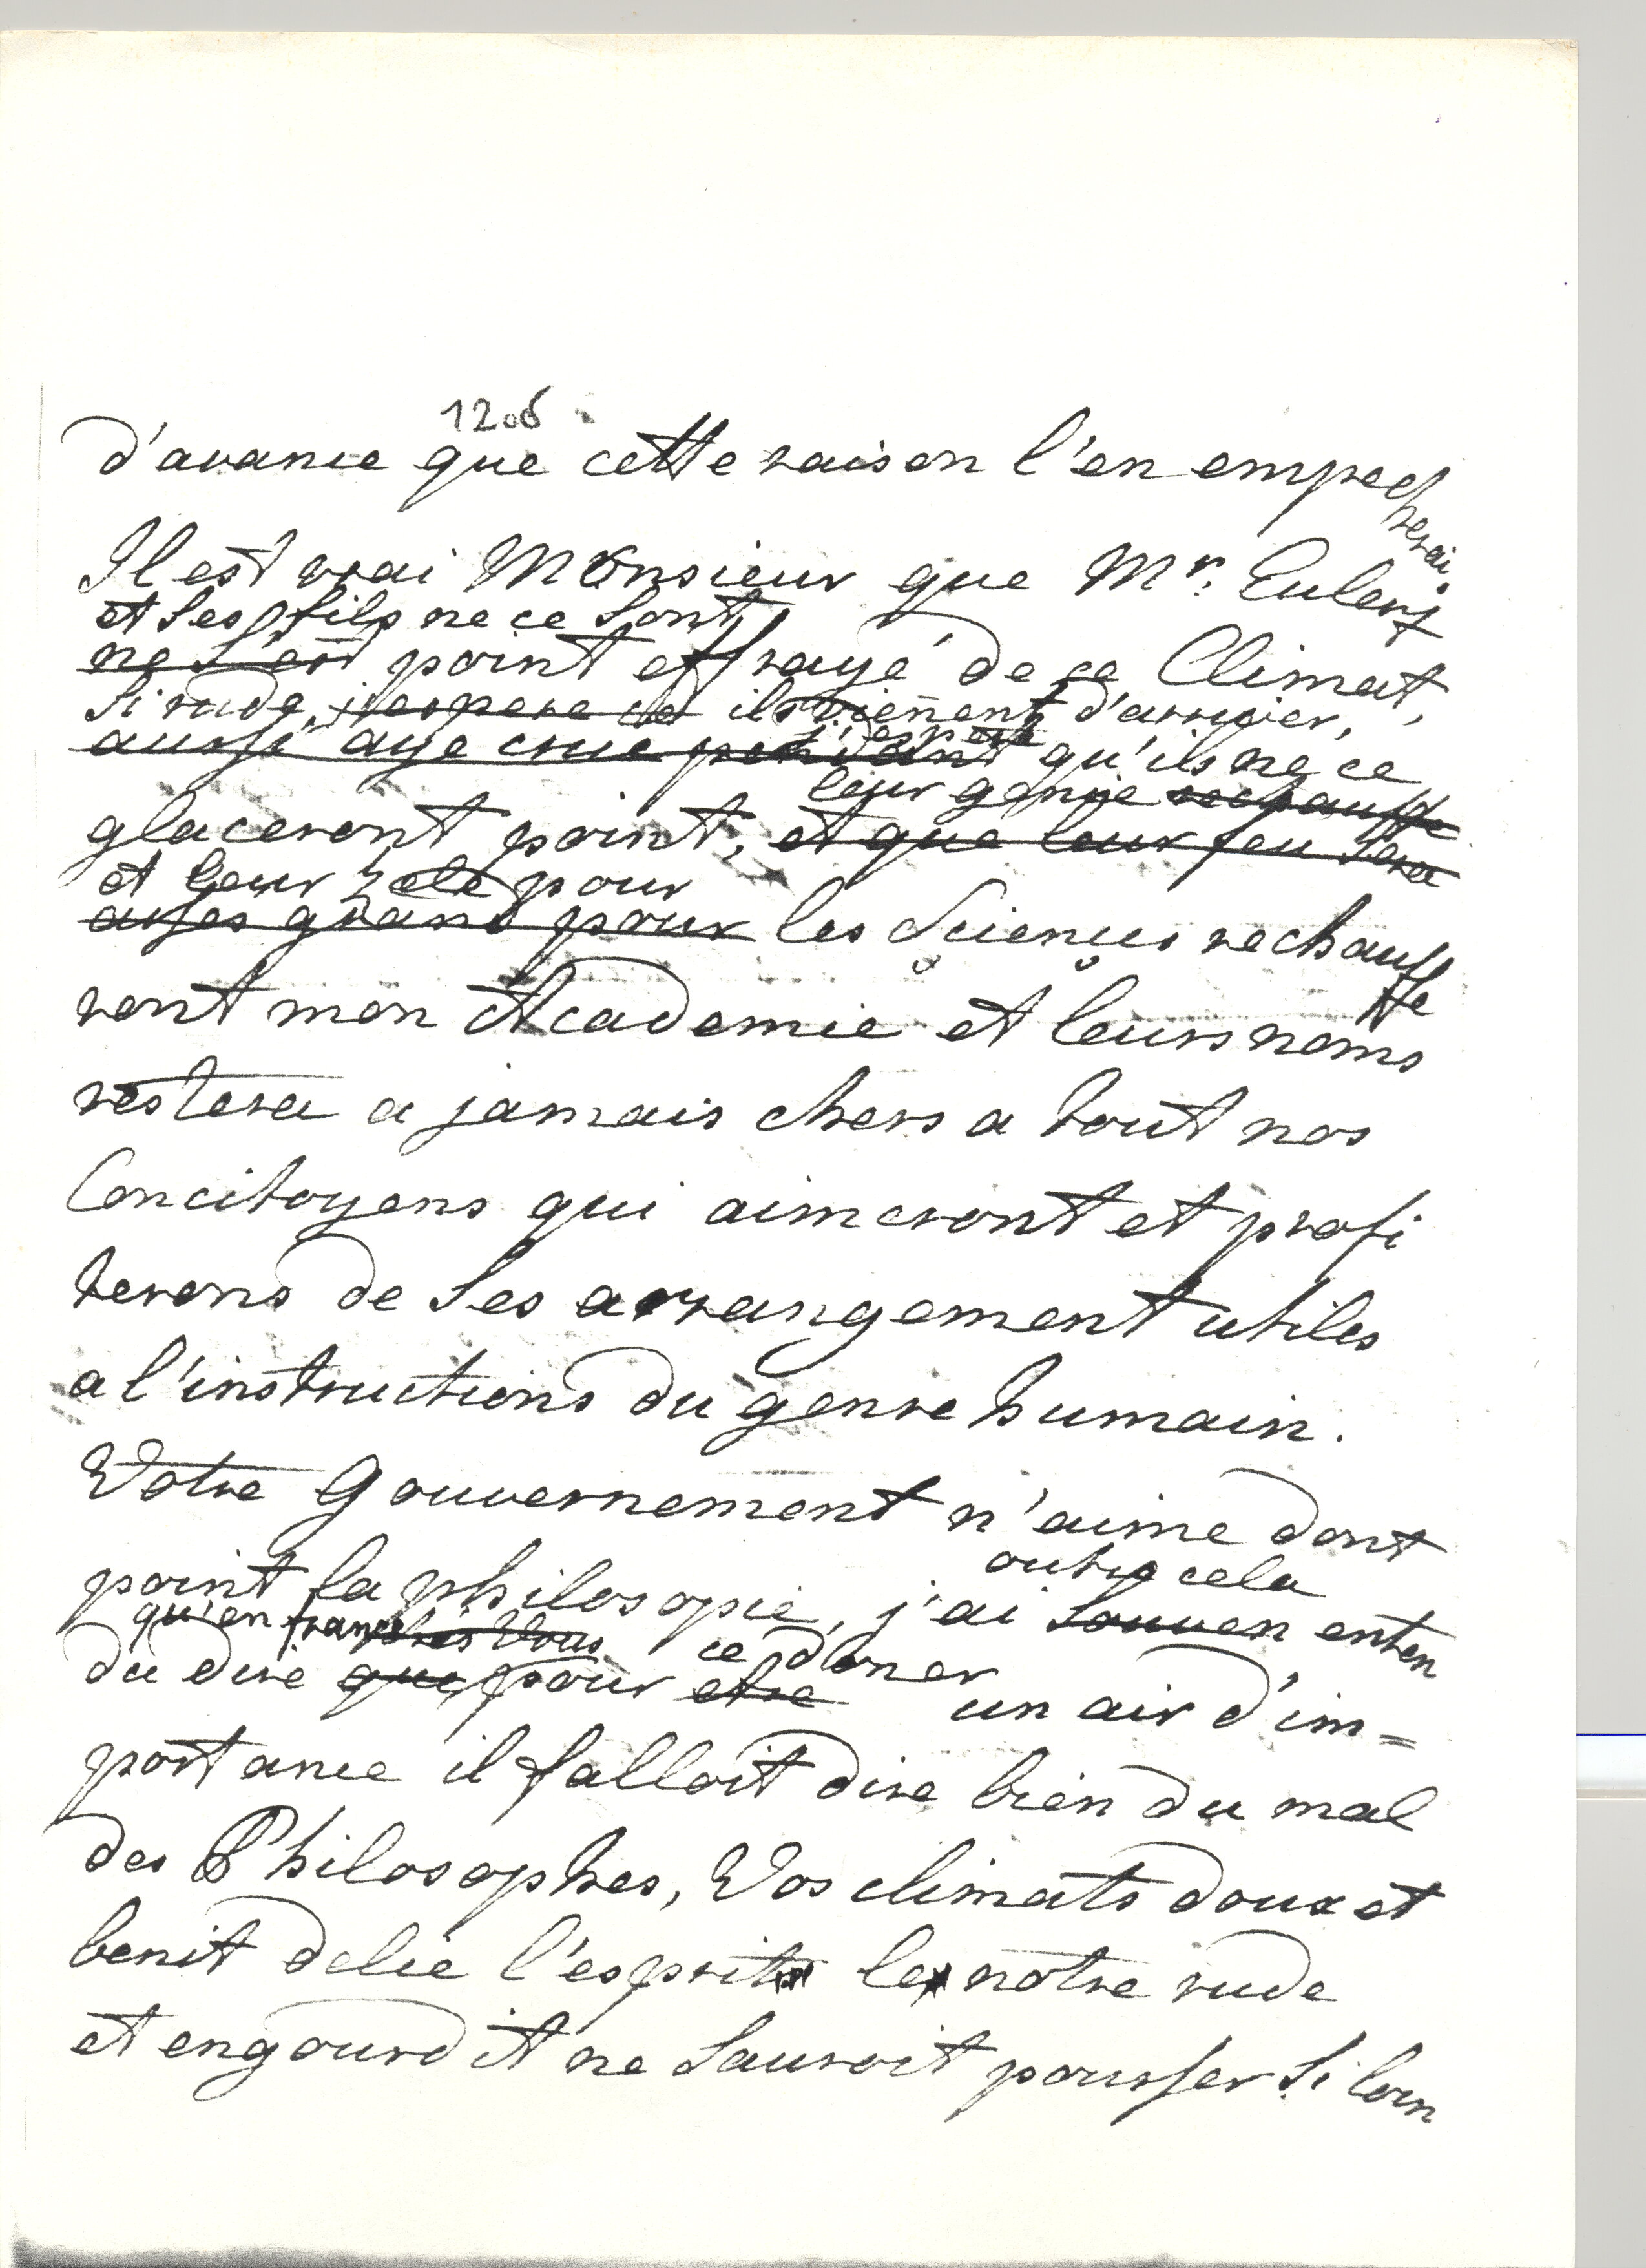 1206
d'avance que cette raison l'en empecherai.
Il est vrai Monsieur que Mr. Eulers
et ses fils ne ce sont
ne s'est point effrayé de ce Climat,
si rude, j'espere ils vienent d'arriver,
j'espere
aussi aye crue pendant qu'ils ne ce
leur genie rechauffe
glaceront point, et que leur feu sera
et leur zele pour
asses grand pour les Sciences rechauffe
ront mon Academie et leurs noms
restera a jamais chers a tout nos
Concitoyens qui aimeront et profi
terons de ses arrangement utiles
a l'instructions du genre humain.
Votre Gouvernement n'aime dont
outre cela
point la philosopie, j'ai souven enten
qu'en france chés Vous ce doner
du dire que pour etre un air d'im=
portance il falloit dire bien du mal
des Philosophes, Vos climats doux et
benit delie l'esprit le notre rude
et engourdit ne sauroit pousser si loin